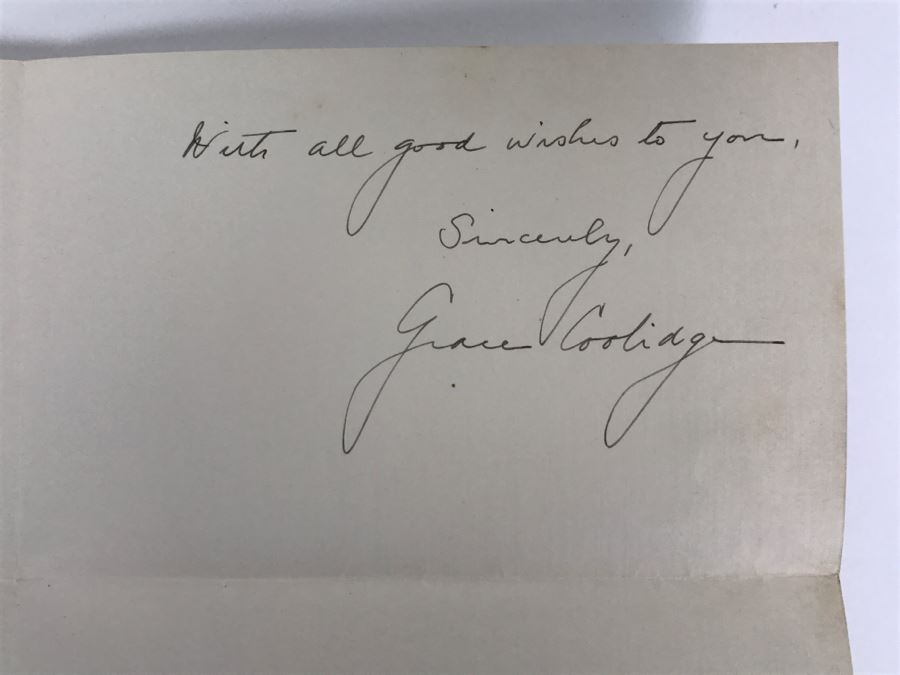 With all good wishes to you,
Sincerely,
Grace Coolidge